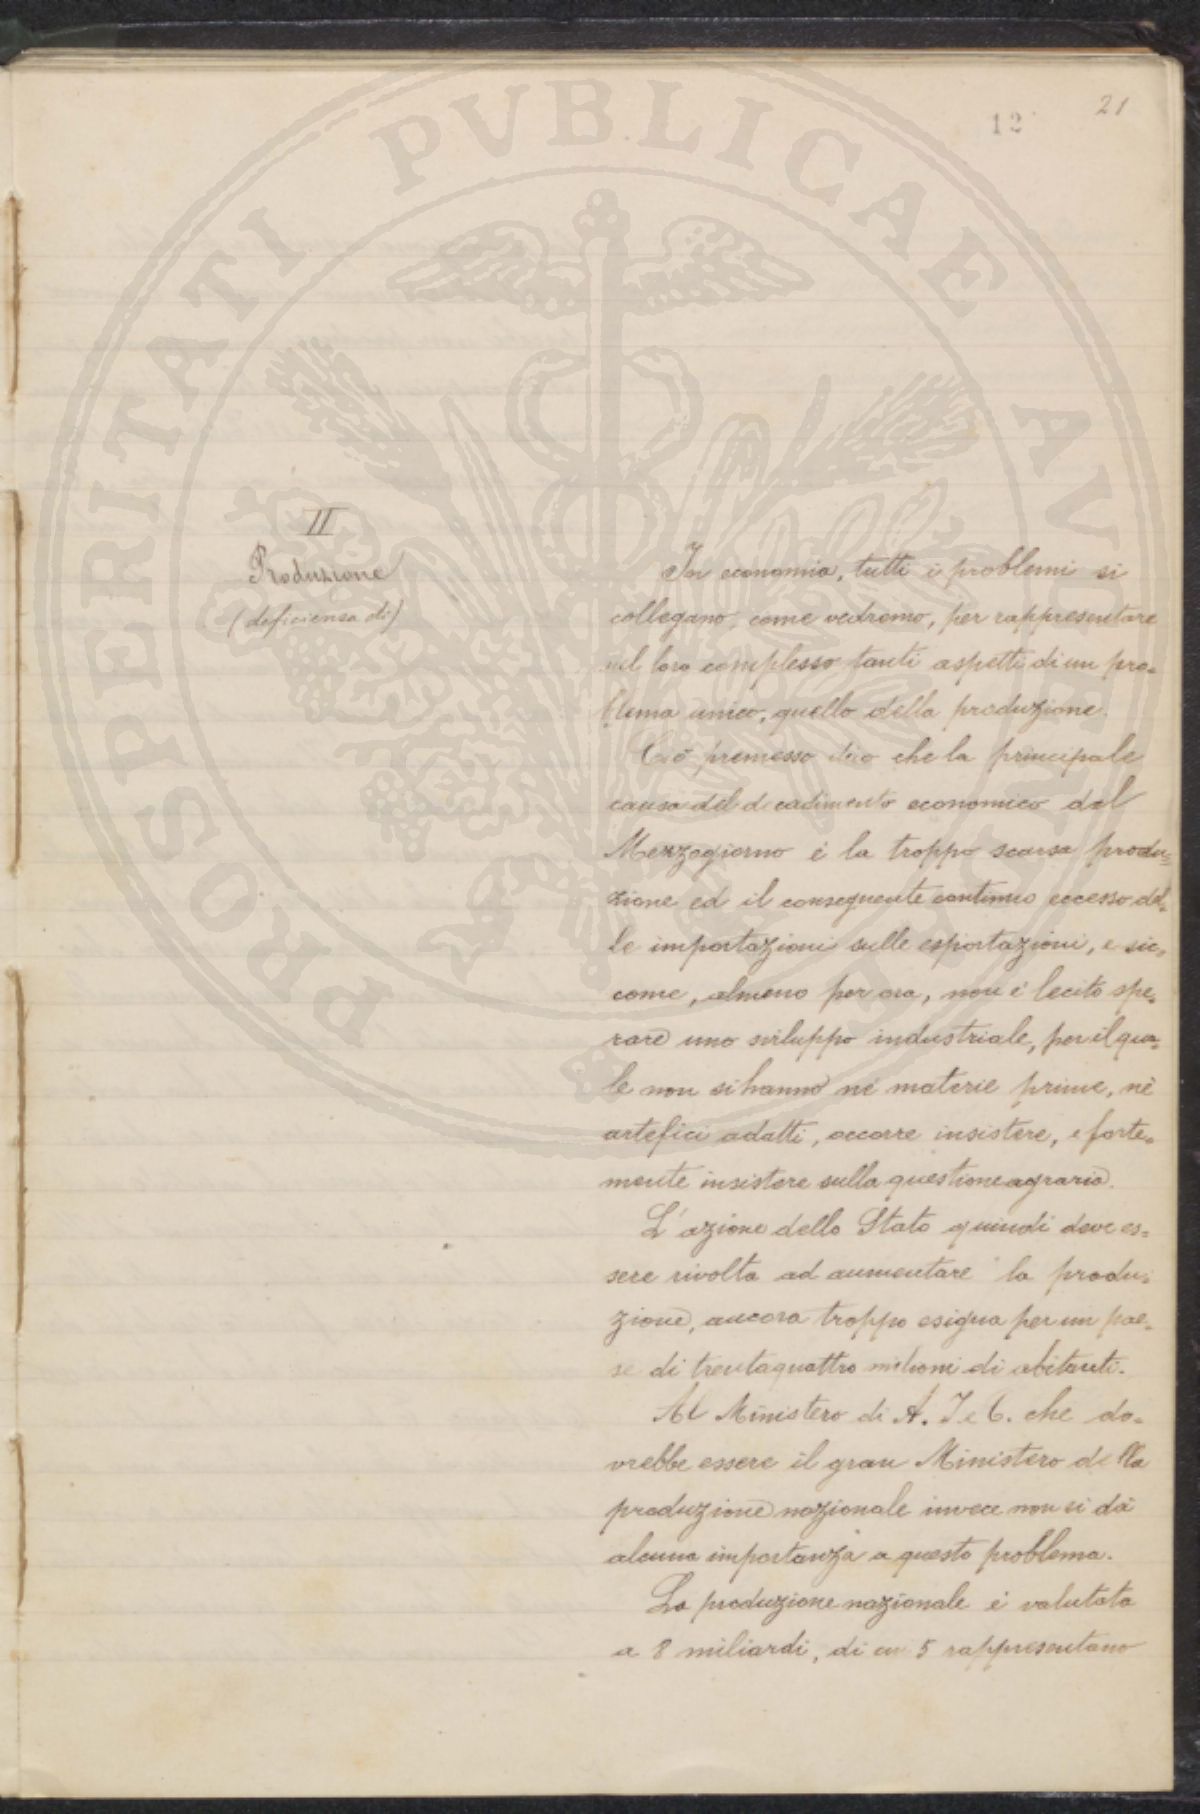 21
12
II
Produzione
(deficienza di)
In economia, tutti i problemi si
collegano, come vedremo, per rappresentare
nel loro complesso tanti aspetti di un pro=
blema unico, quello della produzione.
Ciò premesso dico che la principale
causa del decadimento economico del
Mezzogiorno è la troppo scarsa produ=
zione ed il conseguente continuo eccesso del=
le importazioni sulle esportazioni, e sic=
come, almeno per ora, non è lecito spe=
rare uno sviluppo industriale, per il qua=
le non si hanno nè materie prime, nè
artefici adatti, occorre insistere, e forte=
mente insistere sulla questione agraria.
L'azione dello Stato quindi deve es=
sere rivolta ad aumentare la produ=
zione, ancora troppo esigua per un pae=
se di trentaquattro milioni di abitanti.
Al Ministero di A. I e C. che do=
vrebbe essere il gran Ministero della
produzione nazionale invece non si dà
alcuna importanza a questo problema.
La produzione nazionale è valutata
a 8 miliardi, di cui 5 rappresentano
PROSPERITATI PVBLICAE AVGENDAE